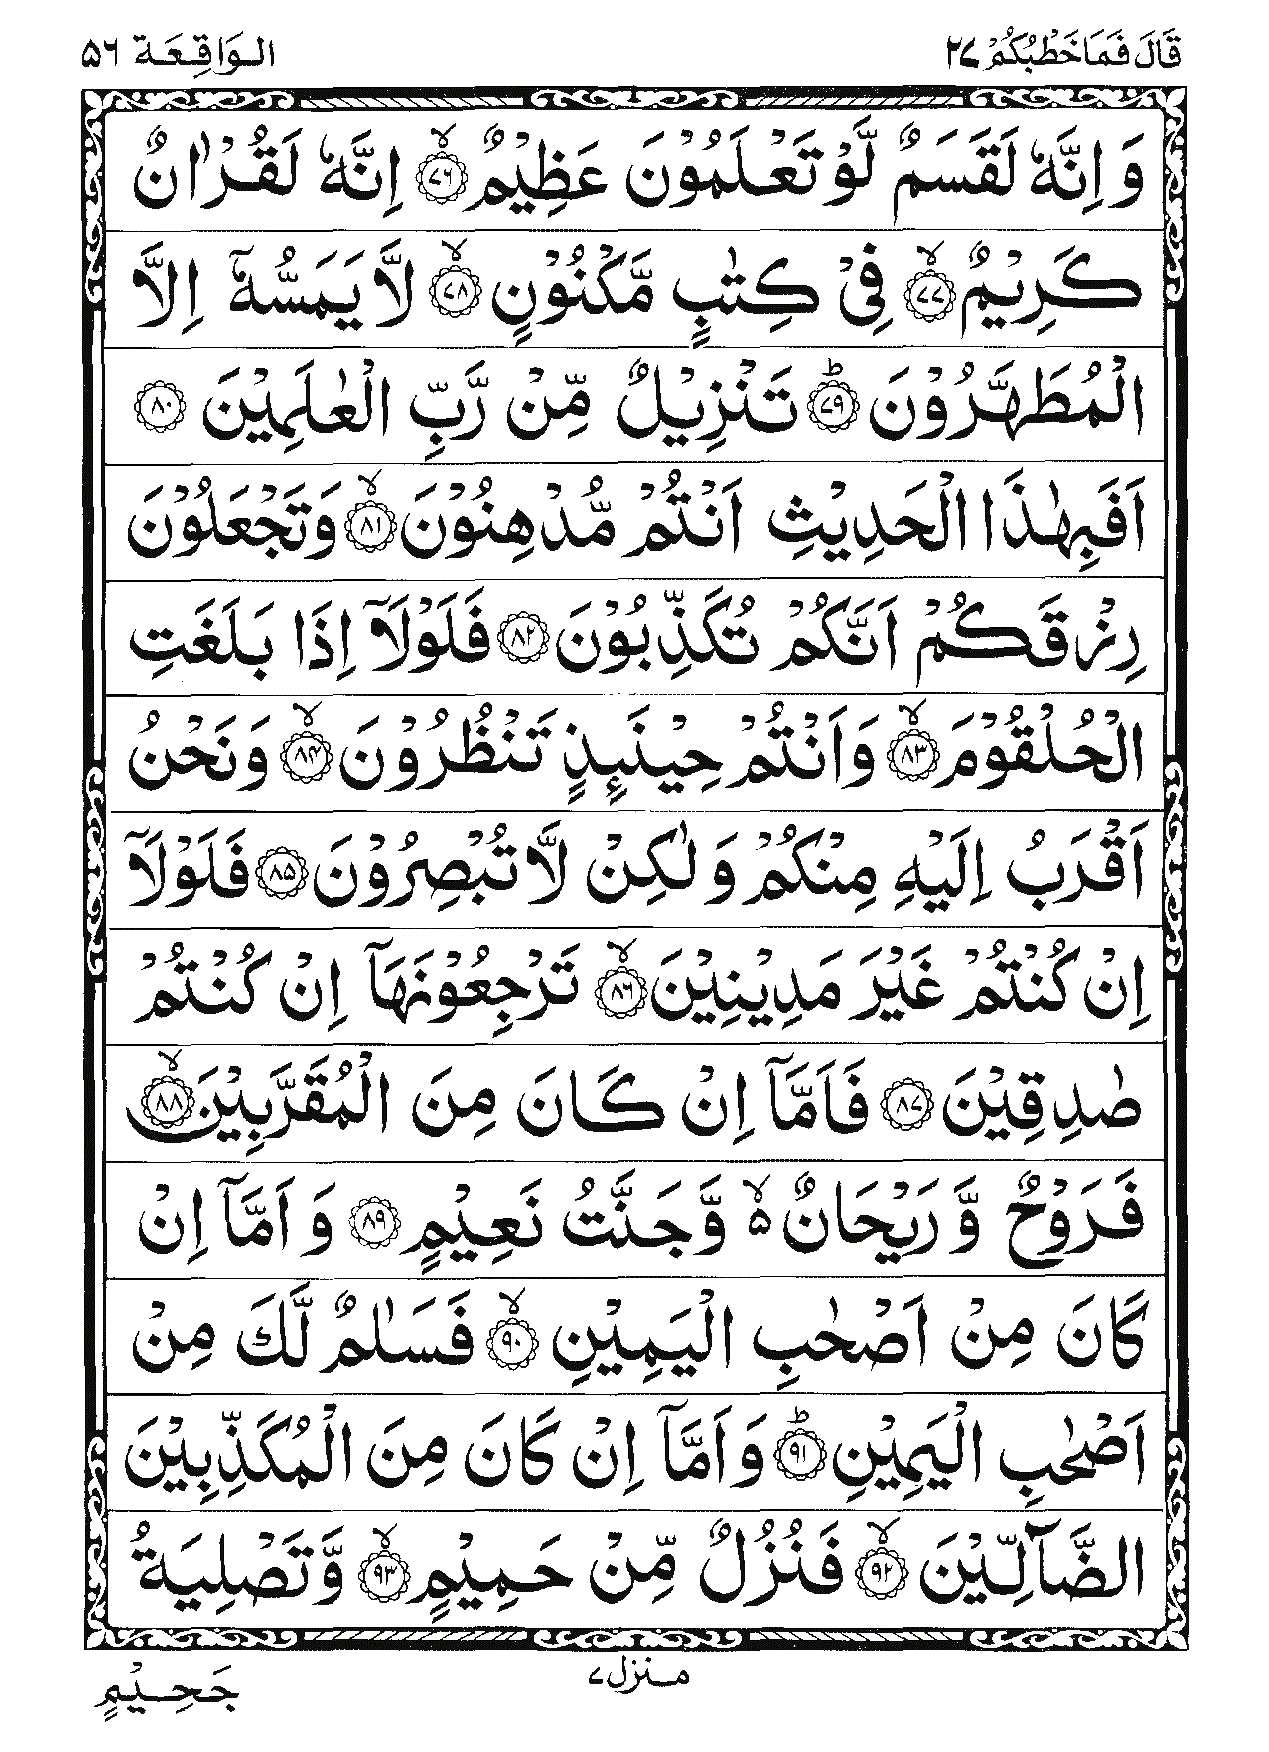 قَالَ فَمَا خَطْبُكُمْ ٢٧
الْوَاقِعَة ٥٦
وَ اِنَّهٗ لَقَسَمٌ لَّوْ تَعْلَمُوْنَ عَظِيْمٌ ۙ﴿۷۶﴾ اِنَّهٗ لَقُرْاٰنٌ
كَرِيْمٌ ۙ﴿۷۷﴾ فِیْ كِتٰبٍ مَّكْنُوْنٍ ۙ﴿۷۸﴾ لَّا يَمَسُّهٗۤ اِلَّا
الْمُطَهَّرُوْنَ ؕ﴿۷۹﴾ تَنْزِيْلٌ مِّنْ رَّبِّ الْعٰلَمِيْنَ ﴿۸۰﴾
اَفَبِهٰذَا الْحَدِيْثِ اَنْتُمْ مُّدْهِنُوْنَ ۙ﴿۸۱﴾ وَتَجْعَلُوْنَ
رِزْقَكُمْ اَنَّكُمْ تُكَذِّبُوْنَ ﴿۸۲﴾ فَلَوْلَاۤ اِذَا بَلَغَتِ
الْحُلْقُوْمَ ۙ﴿۸۳﴾ وَاَنْتُمْ حِيْنَىِٕذٍ تَنْظُرُوْنَ ۙ﴿۸۴﴾ وَنَحْنُ
اَقْرَبُ اِلَيْهِ مِنْكُمْ وَلٰكِنْ لَّا تُبْصِرُوْنَ ﴿۸۵﴾ فَلَوْلَاۤ
اِنْ كُنْتُمْ غَيْرَ مَدِيْنِيْنَ ۙ﴿۸۶﴾ تَرْجِعُوْنَهَاۤ اِنْ كُنْتُمْ
صٰدِقِيْنَ ﴿۸۷﴾ فَاَمَّاۤ اِنْ كَانَ مِنَ الْمُقَرَّبِيْنَ ۙ﴿۸۸﴾
فَرَوْحٌ وَّ رَيْحَانٌ ۙ۵ وَّجَنَّتُ نَعِيْمٍ ﴿۸۹﴾ وَ اَمَّاۤ اِنْ
كَانَ مِنْ اَصْحٰبِ الْيَمِيْنِ ۙ﴿۹۰﴾ فَسَلٰمٌ لَّكَ مِنْ
اَصْحٰبِ الْيَمِيْنِ ؕ﴿۹۱﴾ وَاَمَّاۤ اِنْ كَانَ مِنَ الْمُكَذِّبِيْنَ
الضَّآلِّيْنَ ۙ﴿۹۲﴾ فَنُزُلٌ مِّنْ حَمِيْمٍ ۙ﴿۹۳﴾ وَّتَصْلِيَةُ
منزل ٧
جَحِيْمٍ